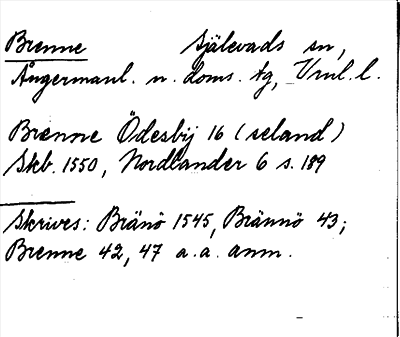 Brenne Själevads sn,
Ångermanl. n. doms. tg, Vnl. l.
Brenne Ödesbij 16 (seland)
Skb. 1550, Nordlander 6 s. 189
Skrives: Bränö 1545, Brännö 43;
Brenne 42, 47 a.a. anm.